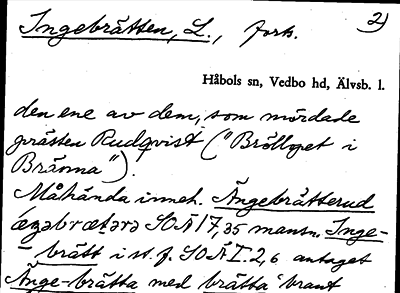 Ingebrätten, L., forts. 2)
Håbols sn, Vedbo hd, Älvsb. l.
den ene av dem, som mördade
prästen Rudqvist ("Bröllopet i
Bränna").
Måhända inneh. Ängebrätterud
SOÄ 17, 35 mansn. Inge-
brätt i st. f. SOÄ I. 2, 6 antaget
Änge-brätta med brätta 'brant